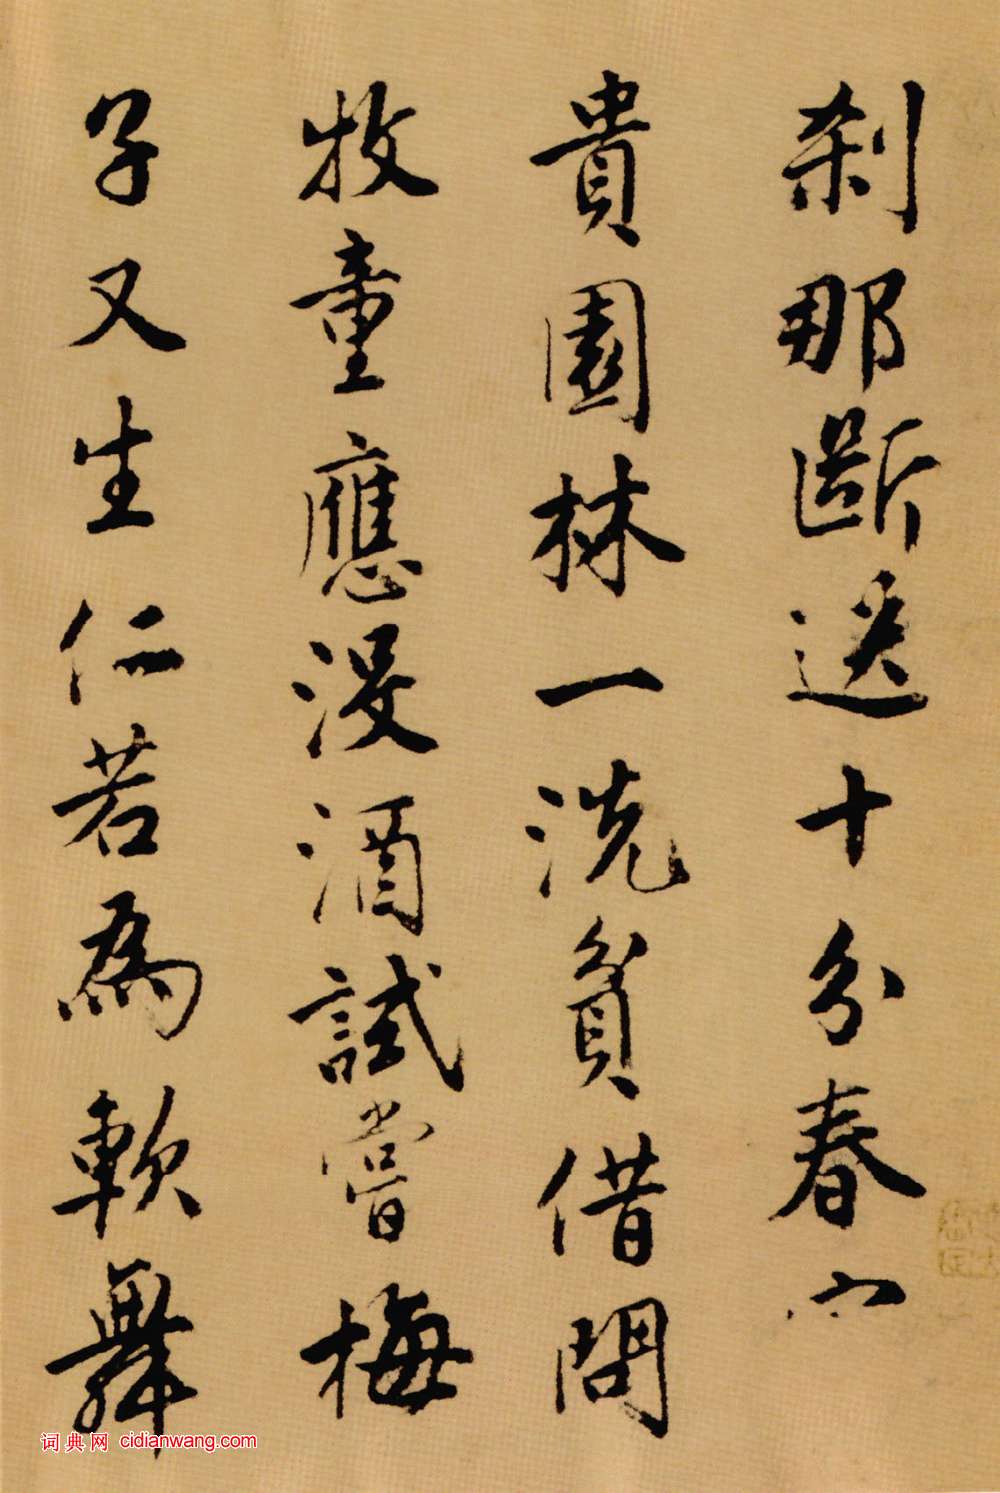 刹那斷送十分春
貴園林一洗貧借問
牧童應沒酒試嘗梅
子又生仁若為軟舞
词典网 cidianwang.com